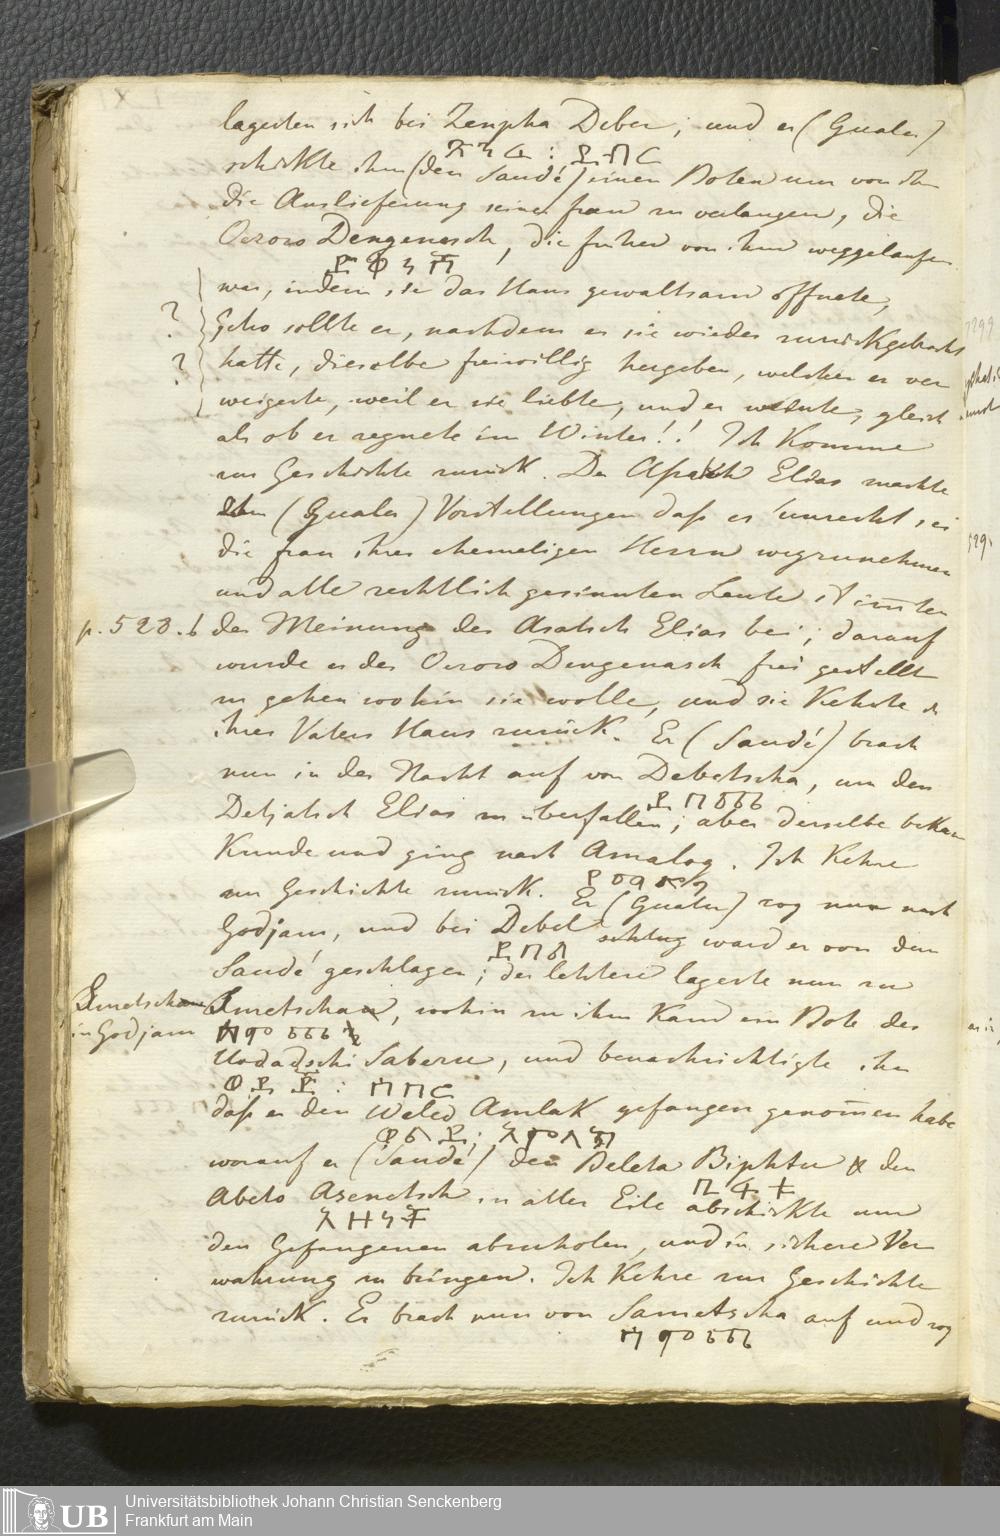 lagerten sich bei Zenpha Deber; und er (Gualu)
schickte ihm (den Saudé) einen Boten um von ihm
die Auslieferung seiner frau zu verlangen, die
Ozoro Dengenasch, die früher von ihm weggelaufen
war, indem sie das Haus gewaltsam öffnete,
? Jetzo sollte er, nachdem er sie wieder zurückgebracht
? hatte, dieselbe freiwillig hergeben, welches er ver
weigerte, weil er sie liebte, und er weinte, gleich
als ob er regnete im Winter!! Ich Komme
zur Geschichte zurück. Der Elias machte
ihm (Gualu) Vorstellungen daß es unrecht sei
die frau ihres ehemaligen Herrn wegzunehmen
und alle rechtlich gesinnten Leute stimten
p. 523. b der Meinung des Asatsch Elias bei; darauf
wurde es der Ozoro Dengenasch frei gestellt
zu gehen wohin sie wolle, und sie Kehrte in
ihres Vaters Haus zurück. Er (Saudé) brach
nun in der Nacht auf von Debetscha, um den
ደበጨ
Detjatsch Elias zu überfallen; aber derselbe bekam
Kunde und ging nach Amalog. Ich Kehre
zur Geschichte zurück. Er (Gualu) zog nun nach
Godjam, und bei Debel ward er von dem
Saudé geschlagen; der letztere lagerte nun zu
Smetschan in Godjam
Smetschan, wohin zu ihm Kam ein Bote des
Uodadschi Saberu, und benachrichtigte ihn
daß er den Weled Amlak gefangen genomen habe
worauf er (Saudé) den Beleta Biphtu den
Abeto Azenetsch in aller Eile abschickte um
den Gefangenen abzuholen, und in sichere Ver
wahrung zu bringen. Ich Kehre zur Geschichte
zurück. Er brach nun von Sametscha auf und zog
ሰመጨ
UB
Universitätsbibliothek Johann Christian Senckenberg
Frankfurt am Main